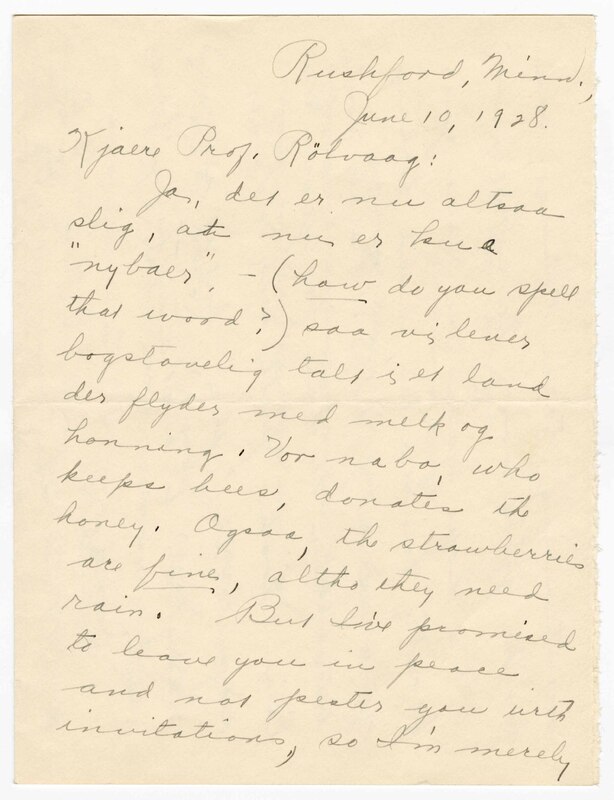 Rushford, Minn.,
June 10, 1928.
Kjaere Prof. Rölvaag:
Ja, det er nu altsaa
slig, at nu er kua
"nybaer", – (how do you spell
that word?) saa vi lever
bogstavelig talt i et land
der flyder med melk og
honning. Vor nabo, who
keeps bees, donates the
honey. Ogsaa, the strawberries
are fine, altho they need
rain. But I've promised
to leave you in peace
and not pester you with
invitations, so I'm merely